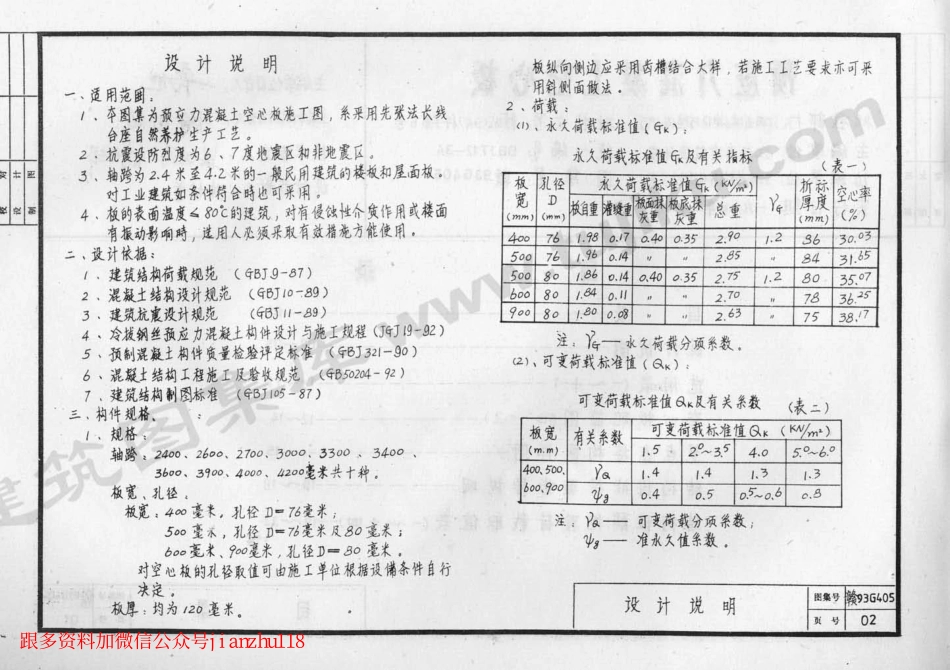 设计说明
一、适用范围：
1、本图集为预应力混凝土空心板施工图，系采用先张法长线
台座自然养护生产工艺。
2、抗震设防烈度为6、7度地震区和非地震区。
3、轴跨为2.4米至4.2米的一般民用建筑的楼板和屋面板。
对工业建筑如条件符合时也可采用。
4、板的表面温度≤80℃的建筑，对有侵蚀性介质作用或楼面
有振动影响时，选用人必须采取有效措施方能使用。
二、设计依据：
1、建筑结构荷载规范 （GBJ9-87）
2、混凝土结构设计规范 （GBJ10-89）
3、建筑抗震设计规范 （GBJ11-89）
4、冷拔钢丝预应力混凝土构件设计与施工规程（JGJ19-92）
5、预制混凝土构件质量检验评定标准 （GBJ321-90）
6、混凝土结构工程施工及验收规范 （GB50204-92）
7、建筑结构制图标准 （GBJ105-87）
三、构件规格。
1、规格：
轴跨：2400、2600、2700、3000、3300、3400、
3600、3900、4000、4200毫米共十种。
板宽、孔径。
板宽：400毫米，孔径D=76毫米；
500毫米，孔径D=76毫米及80毫米；
600毫米、900毫米，孔径D=80毫米。
对空心板的孔径取值可由施工单位根据设备条件自行
决定。
板厚：均为120毫米。
板纵向侧边应采用齿槽结合大样，若施工工艺要求亦可采
用斜侧面做法。
2、荷载：
(1)、永久荷载标准值（GK）：
永久荷载标准值GK及有关指标 （表一）
板宽(mm) 孔径D(mm) 永久荷载标准值GK（KN/m²） γG 折标厚度(mm) 空心率(%)
板自重 灌缝重 板面抹灰重 板底抹灰重 总重
400 76 1.98 0.17 0.40 0.35 2.90 1.2 86 30.03
500 76 1.96 0.14 〃 〃 2.85 〃 84 31.65
500 80 1.86 0.14 0.40 0.35 2.75 1.2 80 35.07
600 80 1.84 0.11 〃 〃 2.70 〃 78 36.25
900 80 1.80 0.08 〃 〃 2.63 〃 75 38.17
注：γG——永久荷载分项系数。
(2)、可变荷载标准值（QK）：
可变荷载标准值QK及有关系数 （表二）
板宽(m.m) 有关系数 可变荷载标准值QK（KN/m²）
1.5 2.0~3.5 4.0 5.0~6.0
400、500、600、900 γQ 1.4 1.4 1.3 1.3
ψq 0.4 0.5 0.5~0.6 0.8
注：γQ—— 可变荷载分项系数；
ψq—— 准永久值系数。
设计说明
图集号 赣93G405
页号 02
跟多资料加微信公众号jianzhu118